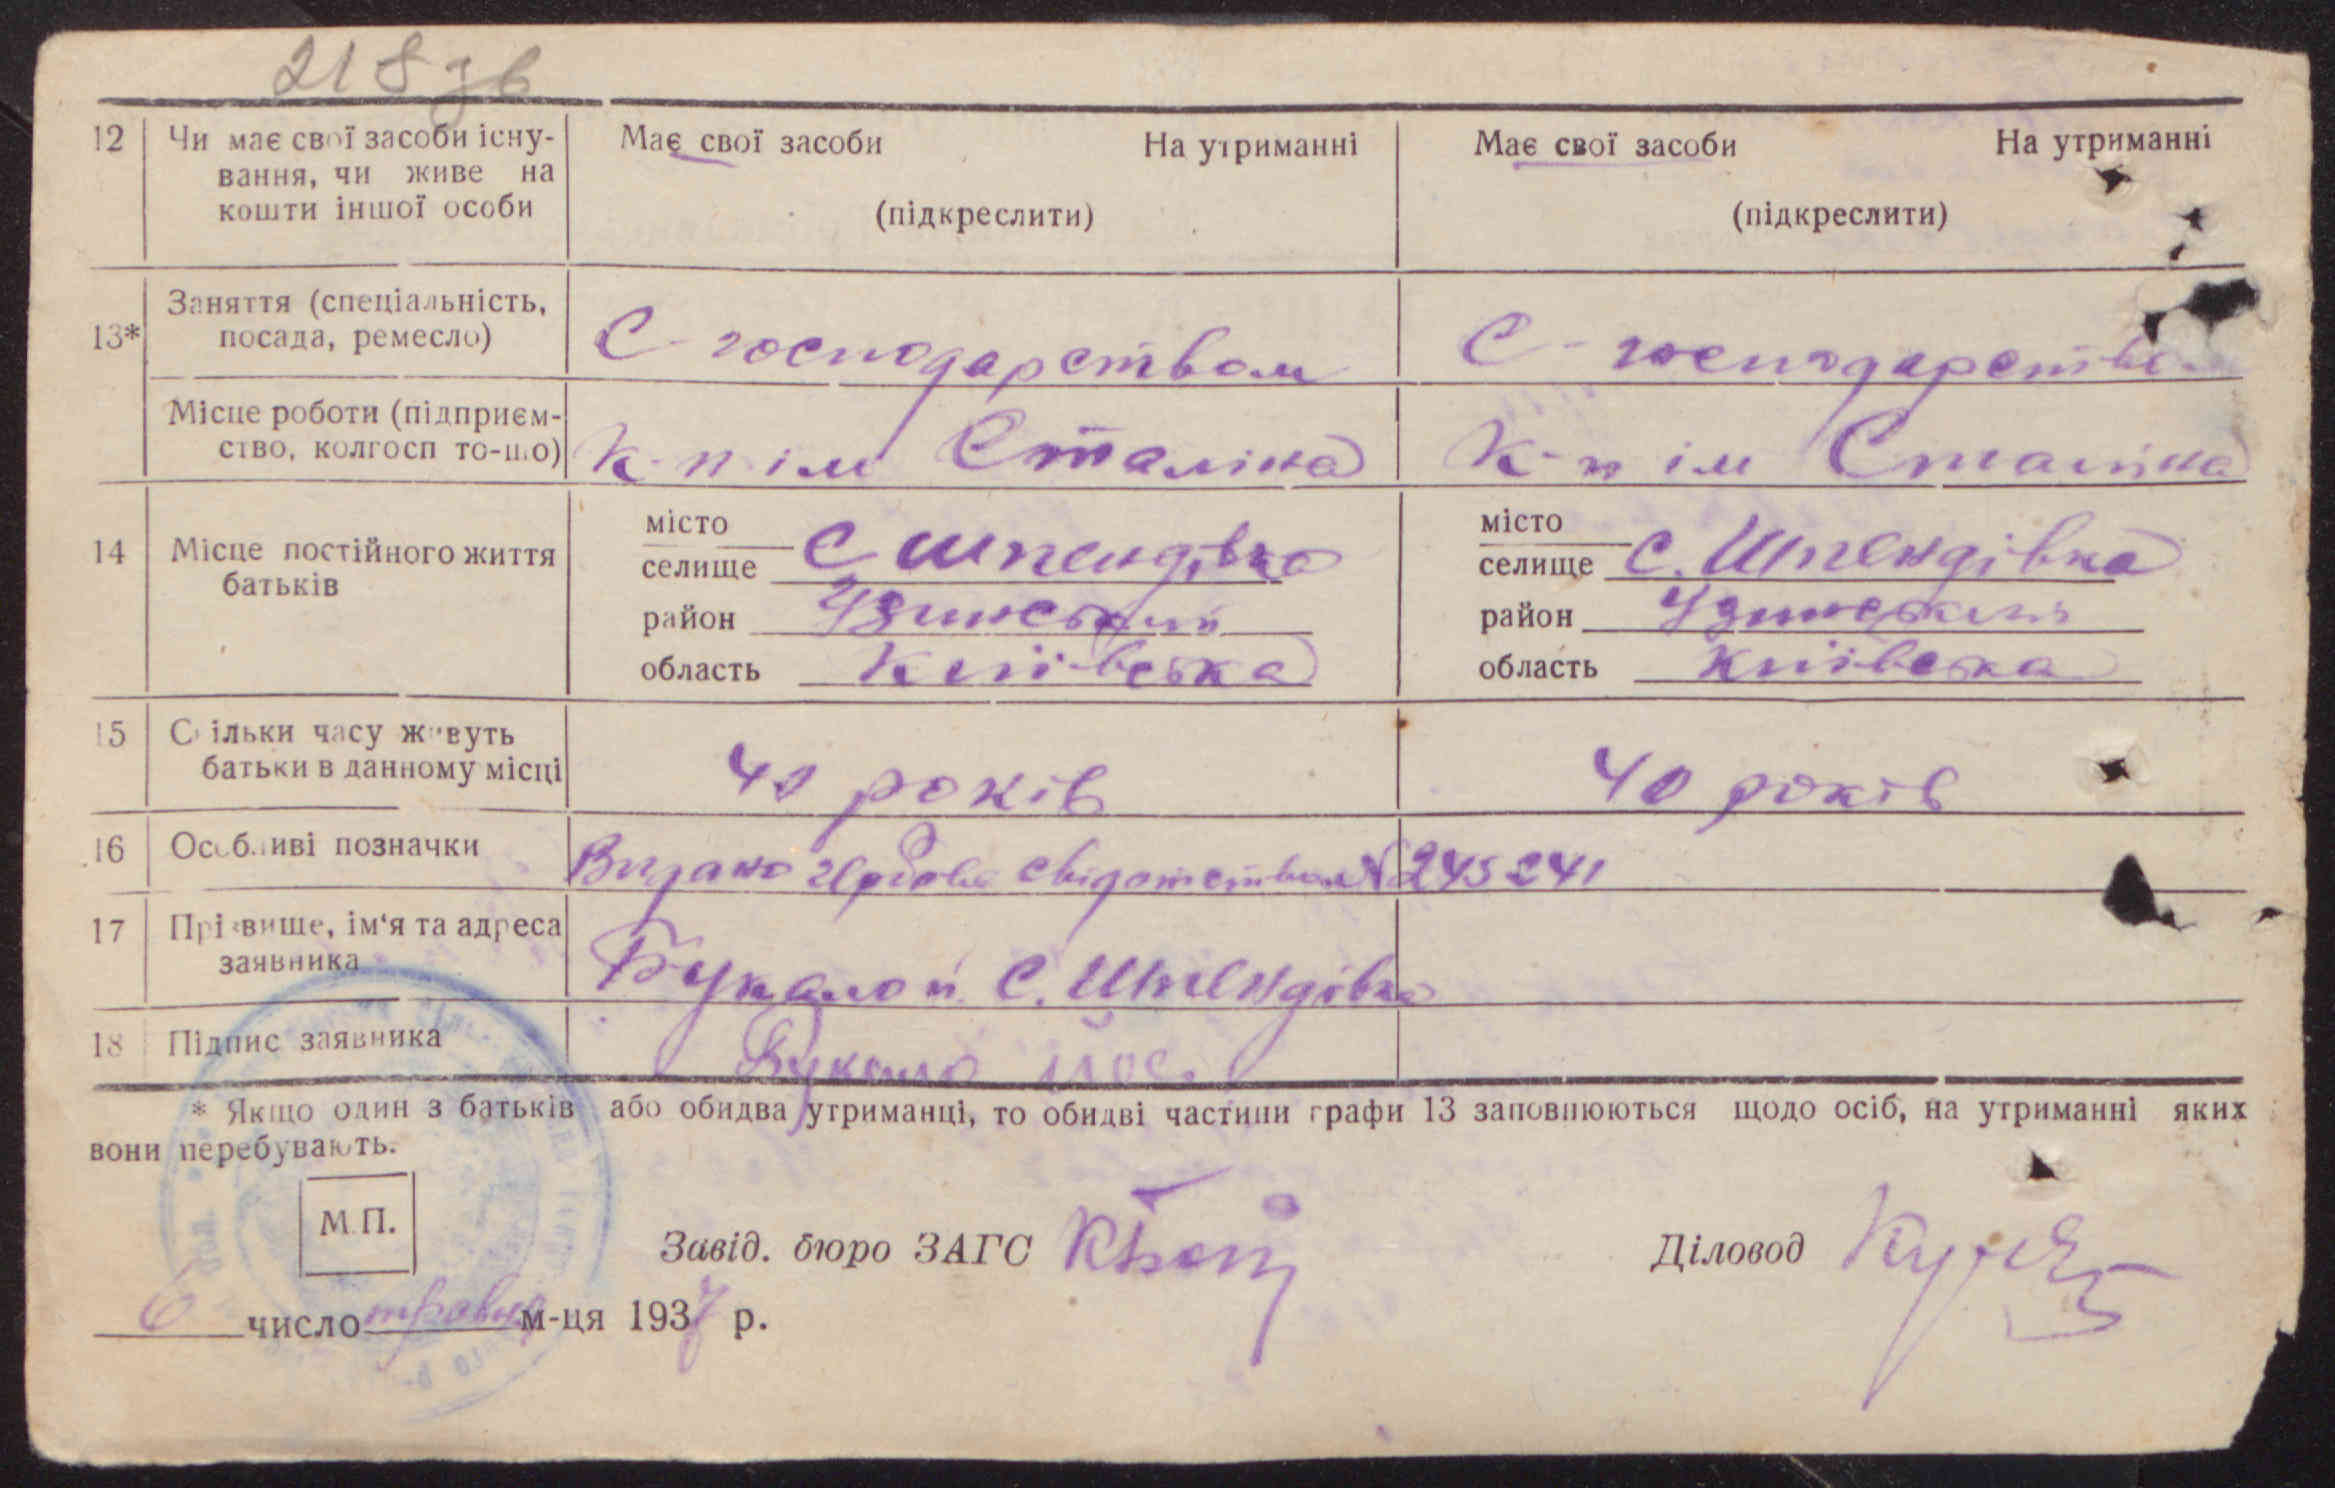 218 зв
12 Чи має свої засоби існу- Має свої засоби На утриманні Має свої засоби На утриманні
вання, чи живе на
кошти іншої особи (підкреслити) (підкреслити)
Заняття (спеціальність,
13* посада, ремесло) С-господарством С-господарство
Місце роботи (підприєм-
ство, колгосп то-що) К-п ім Сталіна К-п ім Сталіна
місто місто
14 Місце постійного життя селище С Шпендівка селище С. Шпендівка
батьків район Узинський район Узинський
область Київська область Київська
15 Скільки часу живуть
батьки в данному місці 40 років 40 років
16 Особливі позначки Видано свідотство № 245241
17 Прізвище, ім'я та адреса
заявника Букало й. С. Шпендівка
18 Підпис заявника Букало
* Якщо один з батьків або обидва утриманці, то обидві частини графи 13 заповнюються щодо осіб, на утриманні яких
вони перебувають.
М.П.
Завід. бюро ЗАГС Діловод
6 число травня м-ця 1937 р.